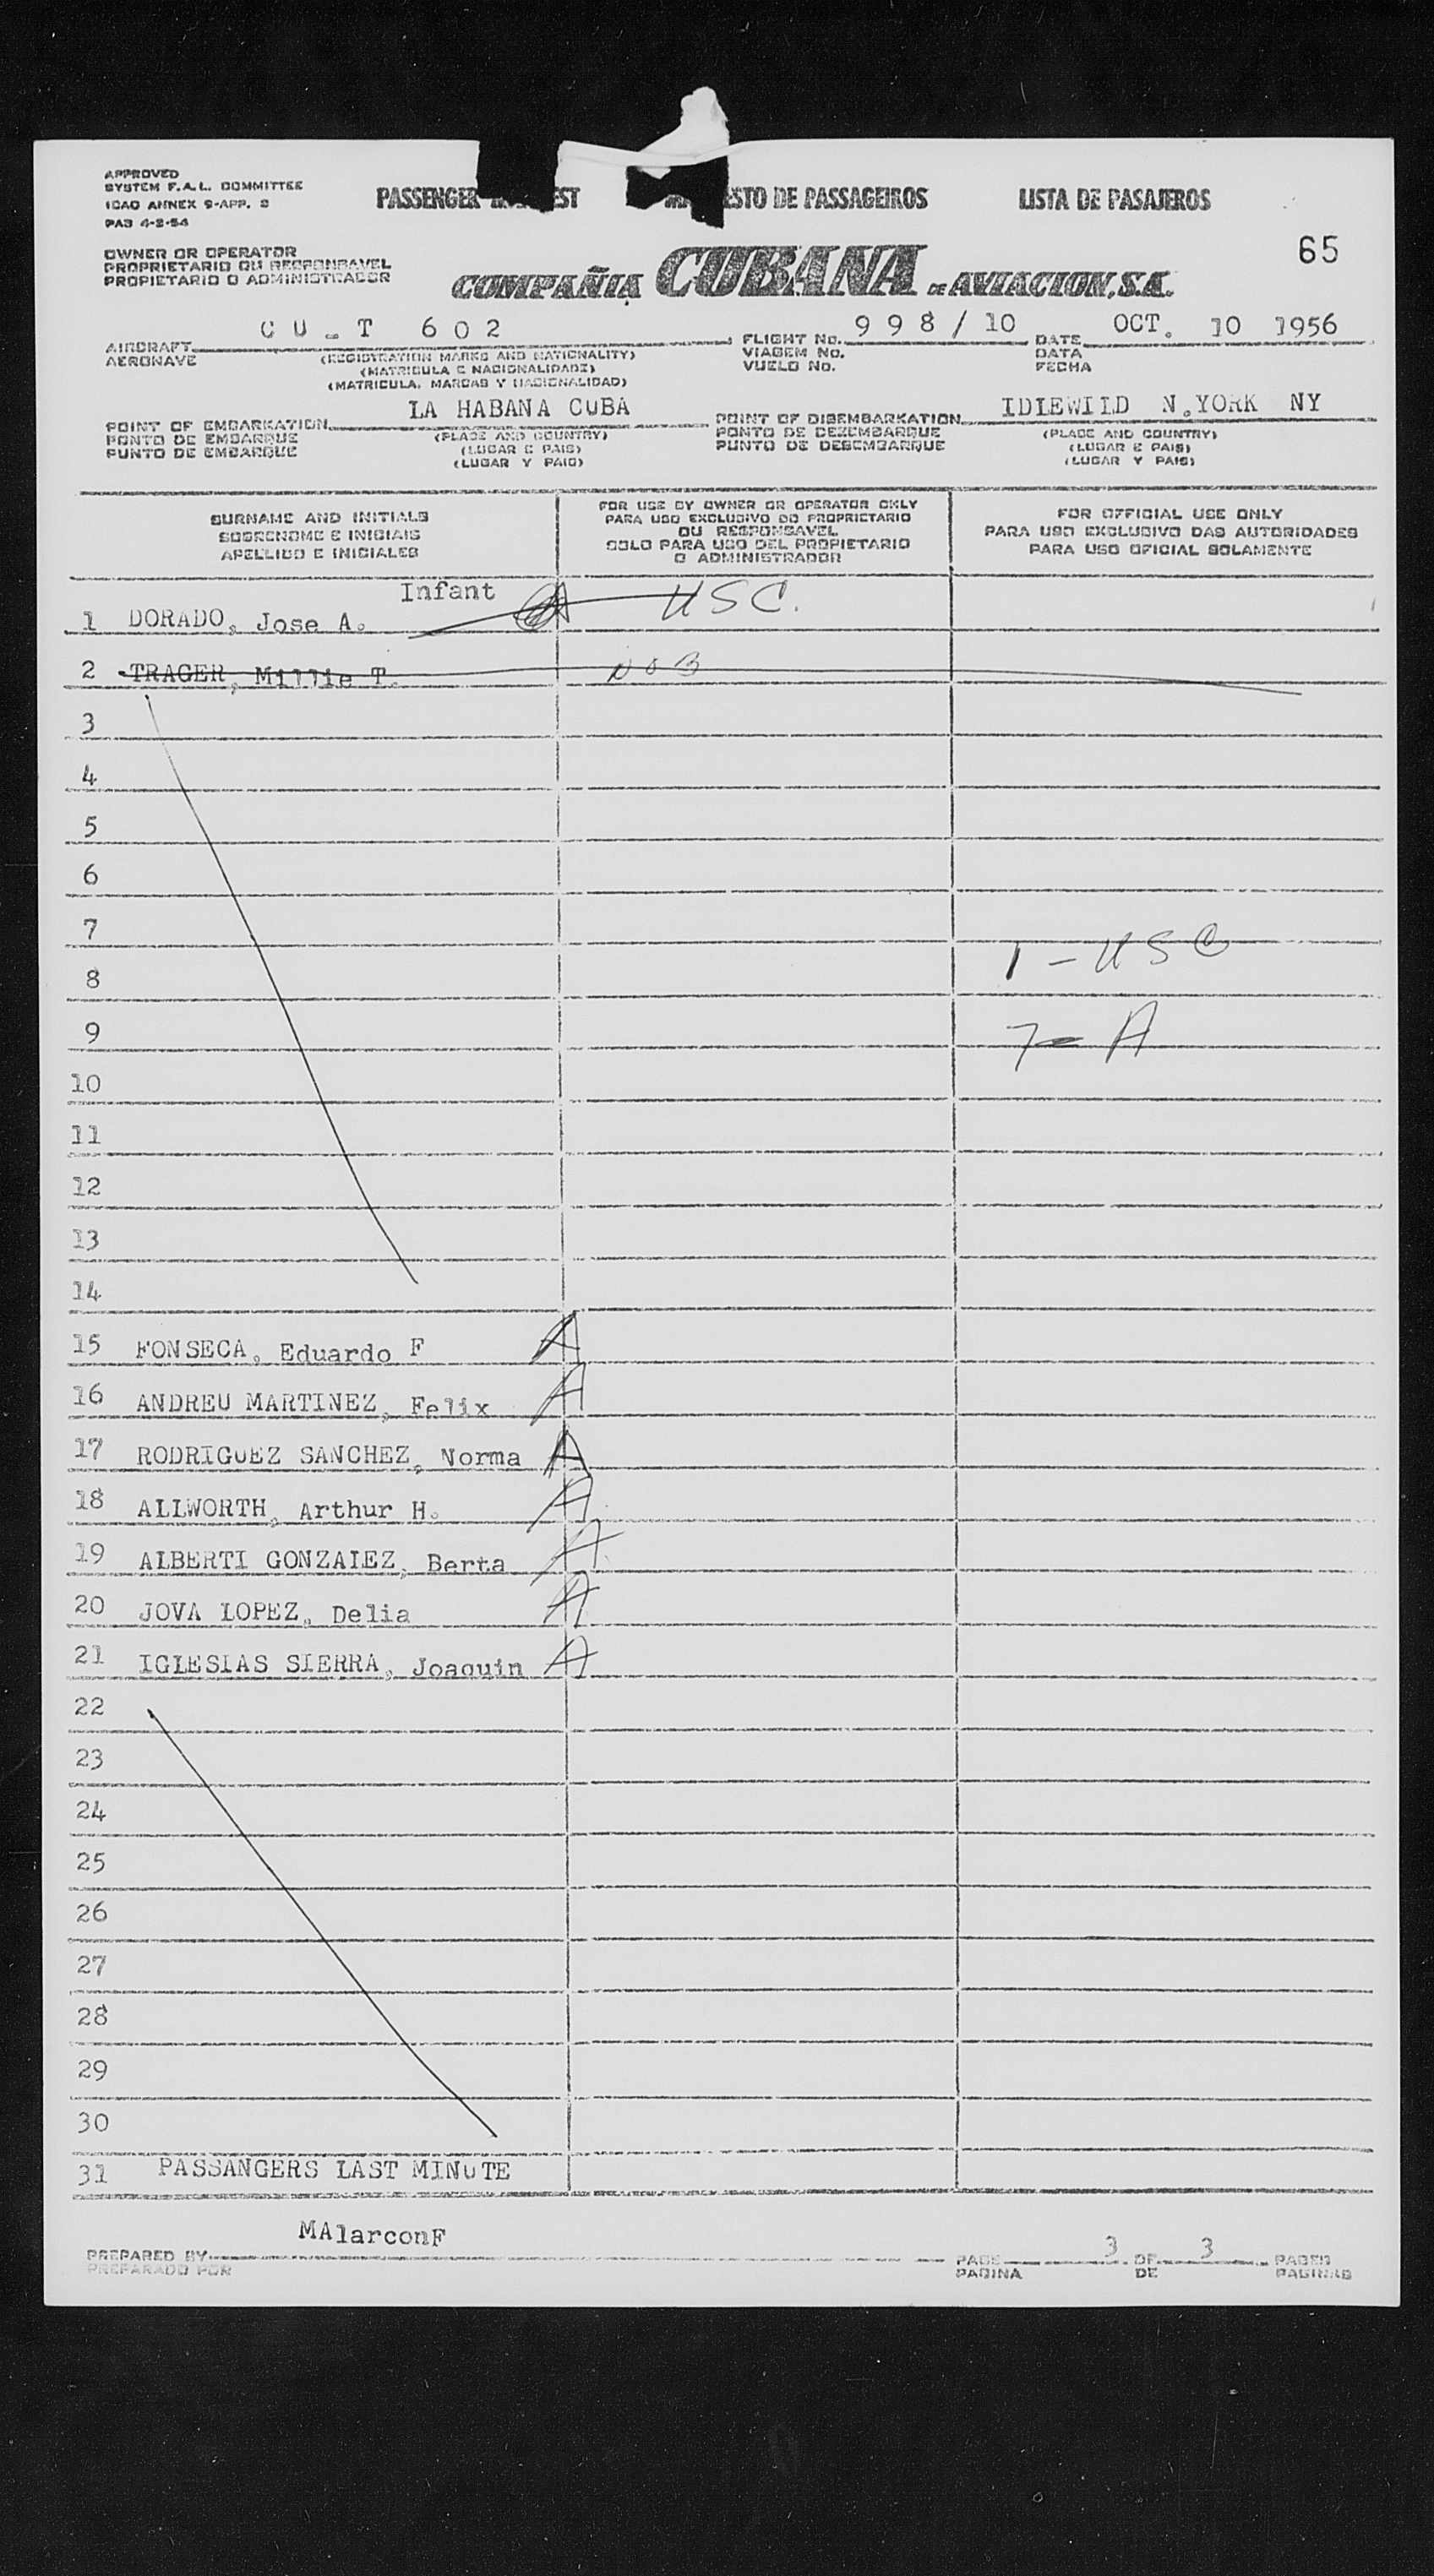 APPROVED
SYSTEM F.A.L. COMMITTEE
ICAO ANNEX 9-APP. 2
PAB 4-2-54
PASSENGER EST ESTO DE PASSAGEIROS LISTA DE PASAJEROS
65
OWNER OR OPERATOR
PROPRIETARIO OU RESPONSAVEL
PROPIETARIO O ADMINISTRADOR
COMPAÑIA CUBANA DE AVIACION, S.A.
AIRCRAFT CU-T 602 FLIGHT No. 998/10 DATE OCT. 10 1956
AERONAVE (REGISTRATION MARKS AND NATIONALITY) VIAGEM No. DATA
(MATRICULA E NACIONALIDADE) VUELO No. FECHA
(MATRICULA, MARCAS Y NACIONALIDAD)
POINT OF EMBARKATION LA HABANA CUBA POINT OF DISEMBARKATION IDLEWILD N.YORK NY
PONTO DE EMBARQUE (PLACE AND COUNTRY) PONTO DE DEZEMBARQUE (PLACE AND COUNTRY)
PUNTO DE EMBARQUE (LUGAR E PAIS) PUNTO DE DESEMBARQUE (LUGAR E PAIS)
(LUGAR Y PAIS) (LUGAR Y PAIS)
SURNAME AND INITIALS
SOBRENOME E INICIAIS
APELLIDO E INICIALES
FOR USE BY OWNER OR OPERATOR ONLY
PARA USO EXCLUSIVO DO PROPRIETARIO
OU RESPONSAVEL
SOLO PARA USO DEL PROPIETARIO
O ADMINISTRADOR
FOR OFFICIAL USE ONLY
PARA USO EXCLUSIVO DAS AUTORIDADES
PARA USO OFICIAL SOLAMENTE
Infant
1 DORADO, Jose A. A USC.
2 TRAGER, Millie T. NOB
3
4
5
6
7
1 - USC
8
9
7 - A
10
11
12
13
14
15 FONSECA, Eduardo F A
16 ANDREU MARTINEZ, Felix A
17 RODRIGUEZ SANCHEZ, Norma A
18 ALLWORTH, Arthur H. A
19 ALBERTI GONZALEZ, Berta A
20 JOVA LOPEZ, Delia A
21 IGLESIAS SIERRA, Joaquin A
22
23
24
25
26
27
28
29
30
31 PASSANGERS LAST MINUTE
MAlarconF
PREPARED BY PAGE 3 OF 3 PAGES
PREPARADO POR PAGINA DE PAGINAS